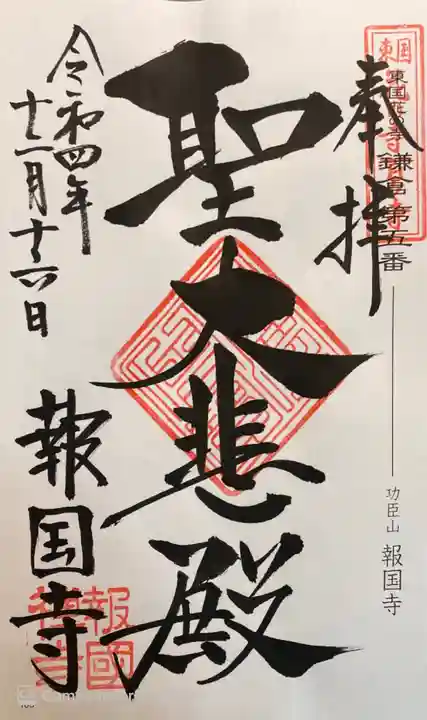 奉拝
東国花の寺 鎌倉第五番
功臣山 報国寺
聖大悲殿
令和四年
十一月十六日
報国寺